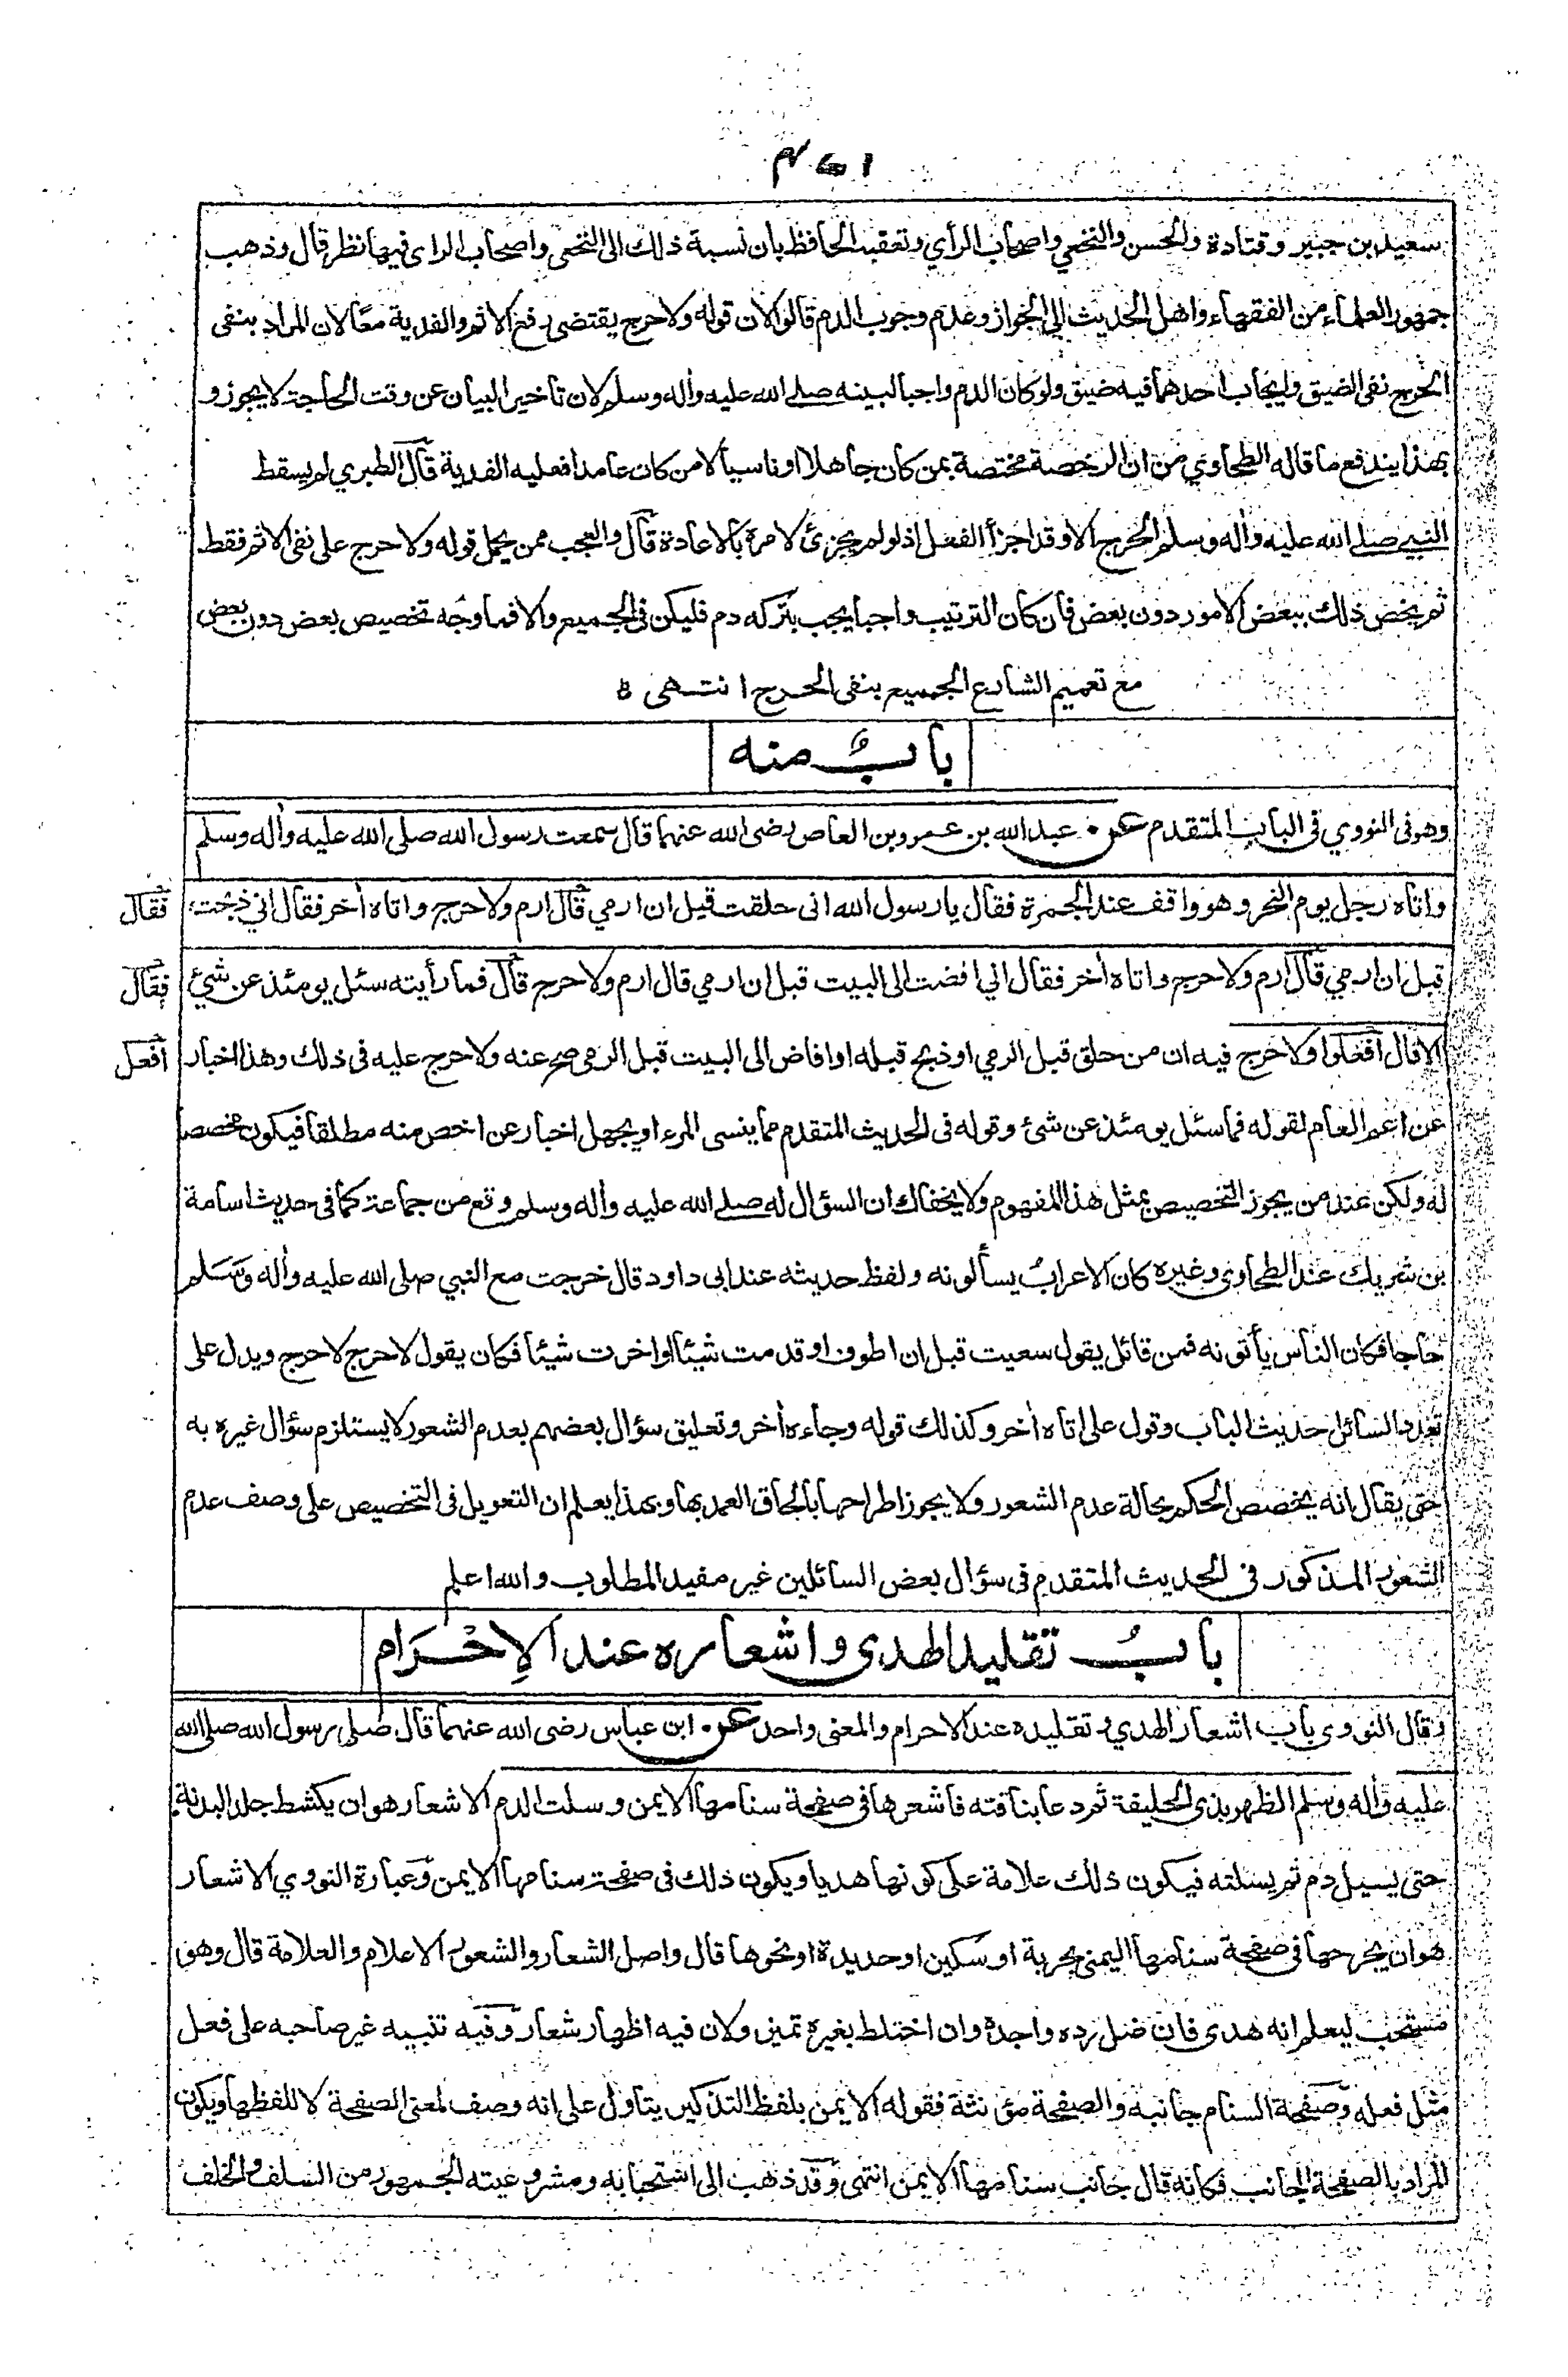 سعيد بن جبير وقتادة والحسن والنخعي واصحاب الرأي وتعقبه الحافظ بان نسبة ذلك الى النخعى واصحاب الراى فيها نظر قال وذهب
جمهور العلماء من الفقهاء واهل الحديث الى الجواز وعدم وجوب الدم قالوا لان قوله ولا حرج يقتضى رفع الاثم والفدية معا لان المراد بنفى
الحرج نفى الضيق وايجاب احدهما فيه ضيق ولو كان الدم واجبا لبينه صلى الله عليه وأله وسلم لان تاخير البيان عن وقت الحاجة لا يجوز و
بهذا يندفع ما قاله الطحاوي من ان الرخصة مختصة بمن كان جاهلا او ناسيا لا من كان عامدا فعليه الفدية قال الطبري لم يسقط
النبي صلى الله عليه وأله وسلم الحرج الا وقد اجزأ الفعل اذ لو لم يجزئ لامره بالاعادة قال والعجب ممن يحمل قوله ولا حرج على نفى الاثم فقط
ثم يخص ذلك ببعض الامور دون بعض فان كان الترتيب واجبا يجب بتركه دم فليكن فى الجميع والا فما وجه تخصيص بعض دون بعض
مع تعميم الشارع الجميع بنفى الحرج انتهى
بابٌ منه
وهو فى النووي فى الباب المتقدم عن عبد الله بن عمرو بن العاص رضى الله عنهما قال سمعت رسول الله صلى الله عليه وأله وسلم
واتاه رجل يوم النحر وهو واقف عند الجمرة فقال يا رسول الله انى حلقت قبل ان ارمي قال ارم ولا حرج واتاه أخر فقال اني ذبحت فقال
قبل ان ارمي قال ارم ولا حرج واتاه أخر فقال اني افضت الى البيت قبل ان ارمي قال ارم ولا حرج قال فما رأيته سئل يومئذ عن شيئ فقال
الا قال افعلوا ولا حرج فيه ان من حلق قبل الرمي او ذبح قبله او افاض الى البيت قبل الرمى صح عنه ولا حرج عليه فى ذلك وهذا اخبار افعل
عن اعم العام لقوله فما سئل يومئذ عن شئ وقوله فى الحديث المتقدم مما ينسى المرء او يجهل اخبار عن اخص منه مطلقا فيكون مخصصا
له ولكن عند من يجوز التخصيص بمثل هذا المفهوم ولا يخفاك ان السؤال له صلى الله عليه وأله وسلم وقع من جماعة كما فى حديث اسامة
بن شريك عند الطحاوى وغيره كان الاعراب يسألونه ولفظ حديثه عند ابى داود قال خرجت مع النبي صلى الله عليه وأله وسلم
حاجا فكان الناس يأتونه فمن قائل يقول سعيت قبل ان اطوف او قدمت شيئا او اخرت شيئا فكان يقول لا حرج لا حرج ويدل على
تعدد السائل حديث الباب وقول على اتاه أخر وكذلك قوله وجاءه أخر وتعليق سؤال بعضهم بعدم الشعور لا يستلزم سؤال غيره به
حتى يقال انه يخصص الحكم بحالة عدم الشعور ولا يجوز اطراحها بالحاق العمد بها وبهذا يعلم ان التعويل فى التخصيص على وصف عدم
الشعور المذكور فى الحديث المتقدم فى سؤال بعض السائلين غير مفيد المطلوب والله اعلم
بابُ تقليد الهدى واشعاره عند الإحْرَام
وقال النووى باب اشعار الهدي وتقليده عند الاحرام والمعنى واحد عن ابن عباس رضى الله عنهما قال صلى رسول الله صلى الله
عليه وأله وسلم الظهر بذى الحليفة ثم دعا بناقته فاشعرها فى صفحة سنامها الايمن وسلت الدم الاشعار هو ان يكشط جلد البدنة
حتى يسيل دم ثم يسلته فيكون ذلك علامة على كونها هديا ويكون ذلك فى صفحة سنامها الايمن وعبارة النووي الاشعار
هو ان يجرحها فى صفحة سنامها اليمنى بحربة او سكين او حديدة او نحوها قال واصل الشعار والشعور الاعلام والعلامة قال وهو
مستحب ليعلم انه هدى فان ضل رده واجده وان اختلط بغيره تميز ولان فيه اظهار شعار وفيه تنبيه غير صاحبه على فعل
مثل فعله وصفحة السنام جانبه والصفحة مؤنثة فقوله الايمن بلفظ التذكير يتاول على انه وصف لمعنى الصفحة لا للفظها ويكون
المراد بالصفحة الجانب فكانه قال جانب سنامها الايمن انتهى وقد ذهب الى استحبابه ومشروعيته الجمهور من السلف والخلف